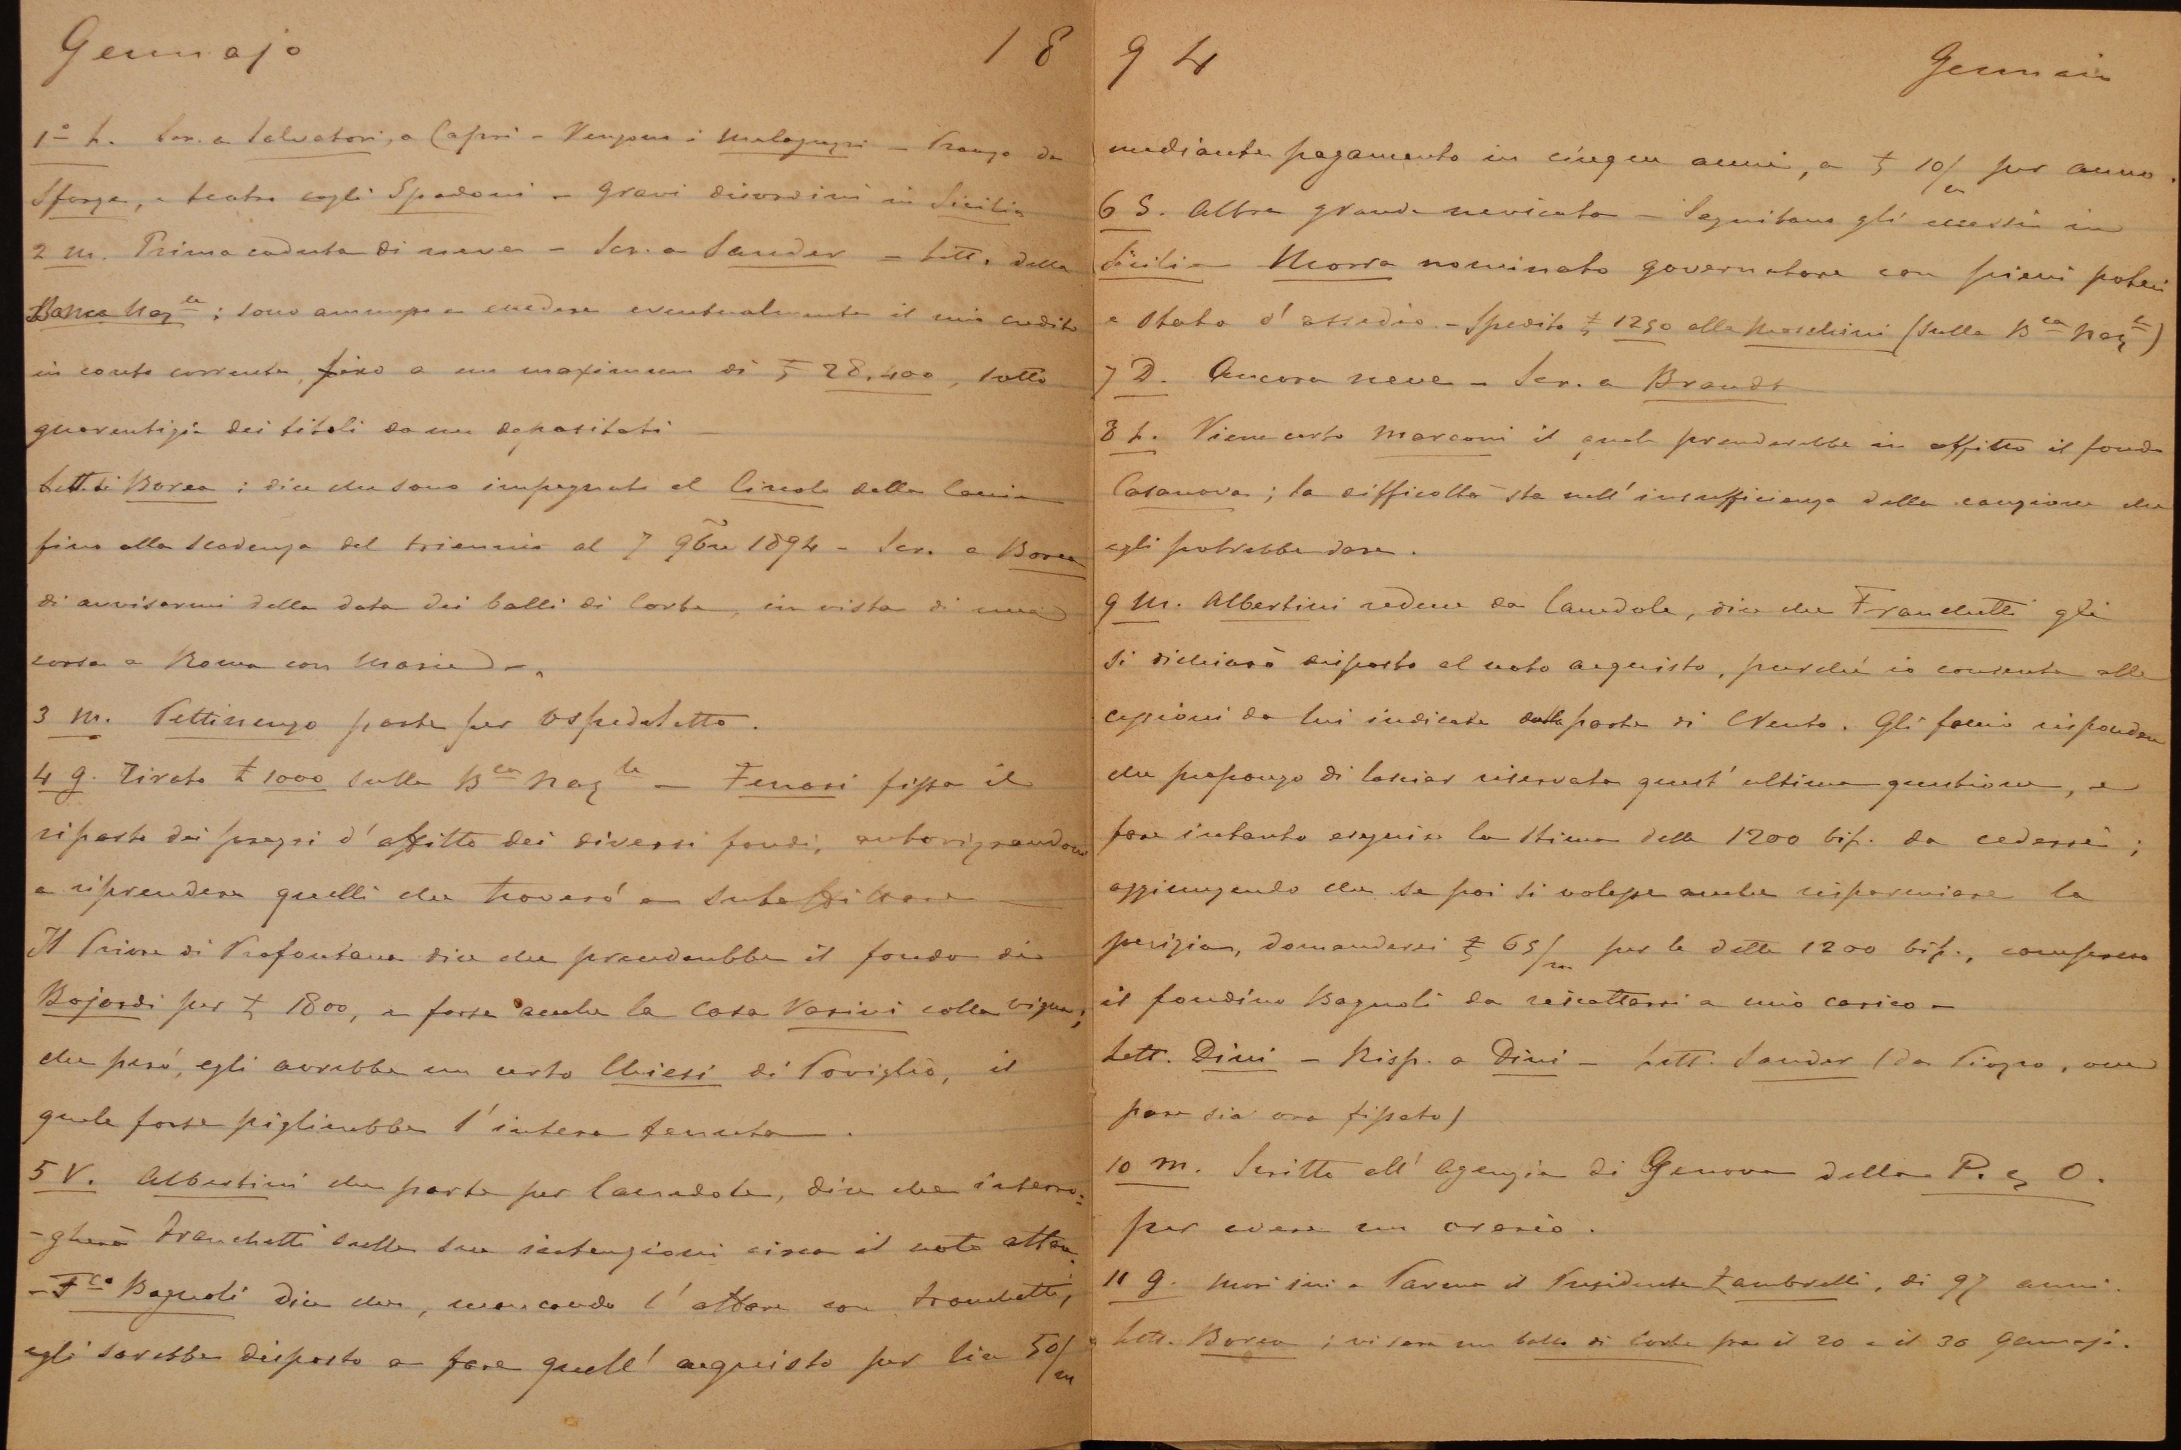 Gennajo 18
1º L. Scr. a Salvatori, a Capri - Vengono i Malaguzzi - Pranzo da
Sforza, e teatro cogli Spadoni - Gravi disordini in Sicilia
2 M. Prima caduta di neve - Scr. a Sander - Lett. della
Banca Nazle; sono ammesso a eccedere eventualmente il mio credito
in conto corrente, fino a un maximum di £ 28,400, sotto
guarentigia dei titoli da me depositati -
Lett. di Borea: dice che sono impegnato al Circolo della Caccia
fino alla scadenza del triennio al 7 9bre 1894 - Scr. a Borea
di avvisarmi della data dei balli di Corte, in vista di una
corsa a Roma con Maria
3 M. Pettinengo parte per Ospedaletto.
4 G. Tirato £ 1000 sulla Bca Nazle - Ferrari fissa il
riparto dei prezzi d'affitto dei diversi fondi, autorizzandomi
a riprendere quelli che troverò a subaffittare
Il Priore di Profontana dice che prenderebbe il fondo di
Bojardi per £ 1800, e forse anche la Casa Vasini colla vigna;
che però, egli avrebbe un certo Chiesi di Poviglio, il
quale forse piglierebbe l'intera tenuta.
5 V. Albertini che parte per Canedole, dice che interro-
-gherà Franchetti sulle sue intenzioni circa il noto affare.
- Fco Bagnoli dice che, mancando l'affare con Franchetti,
egli sarebbe disposto a fare quell'acquisto per lire 50/m
94 Gennaio
mediante pagamento in cinque anni, a £ 10/m per anno.
6 S. Altra grande nevicata - Seguitano gli eccessi in
Sicilia - Morra nominato governatore con pieni poteri
e stato d'assedio. - Spedito £ 1250 alla Moschini (sulla Bca Nazle)
7 D. Ancora neve - Scr. a Brandt
8 L. Viene certo Marconi il quale prenderebbe in affitto il fondo
Casanova; la difficoltà sta nell'insufficienza della cauzione che
egli potrebbe dare.
9 M. Albertini reduce da Canedole, dice che Franchetti gli
si dichiarò disposto al noto acquisto, purchè io consenta alle
cessioni da lui indicate dalla parte di Cvento. Gli faccio rispondere
che propongo di lasciar riservata quest'ultima questione, e
fare intanto eseguire la stima delle 1200 bif. da cedersi;
aggiungendo che se poi si volesse anche risparmiare la
perizia, domanderei £ 65/m per le dette 1200 bif., compreso
il fondino Bagnoli da riscattarsi a mio carico -
Lett. Dini - Risp. a Dini - Lett. Sander (da Piozzo, ove
pare sia ora fissato)
10 M. Scritto all'Agenzia di Genova della P. & O.
per avere un orario.
11 G. Morì ieri a Parma il Presidente Zambrelli, di 97 anni.
Lett. Borea; vi sarà un ballo di Corte fra il 20 e il 30 Gennajo.